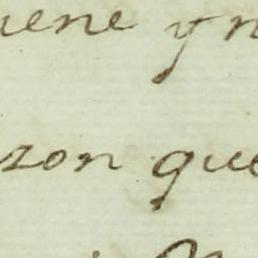 uene yn
zon que